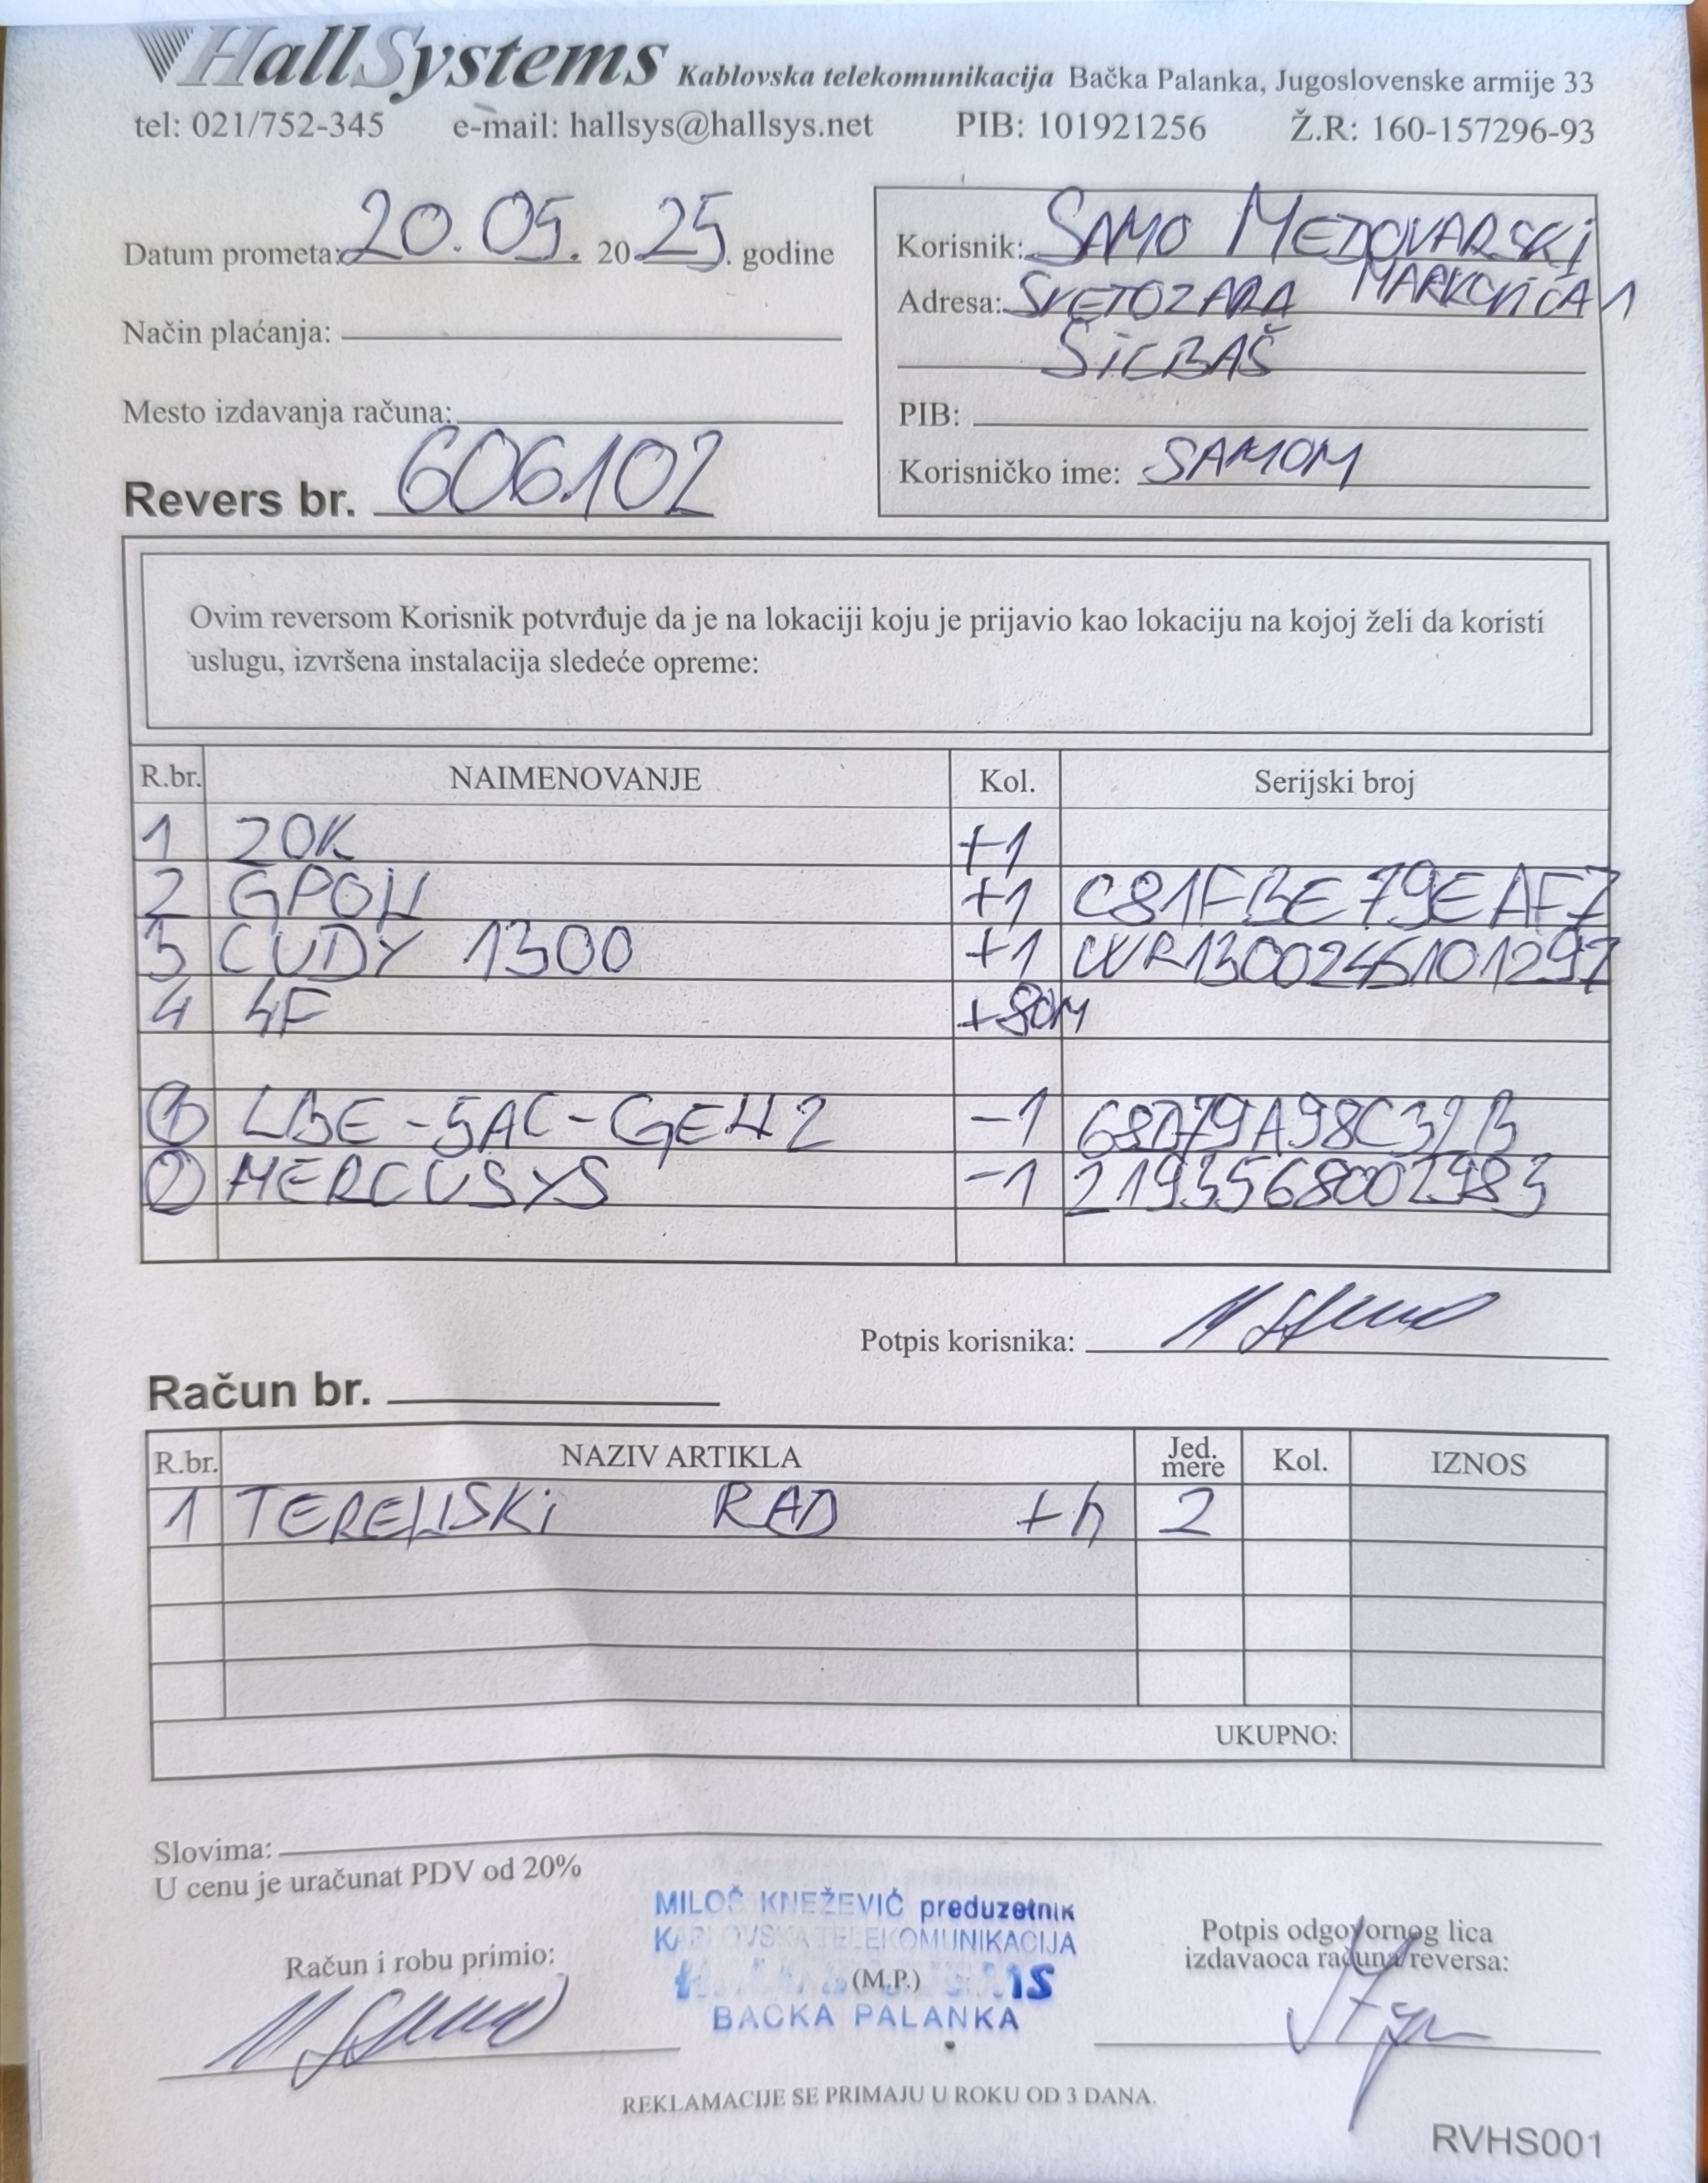 HallSystems Kablovska telekomunikacija Bačka Palanka, Jugoslovenske armije 33
tel: 021/752-345 e-mail: hallsys@hallsys.net PIB: 101921256 Ž.R: 160-157296-93
Datum prometa: 20.05. 2025. godine
Način plaćanja:
Mesto izdavanja računa:
Revers br. 606102
Korisnik: SAMO MEDOVARSKI
Adresa: SVETOZARA MARKOVIĆA 1
SILBAŠ
PIB:
Korisničko ime: SAMOM
Ovim reversom Korisnik potvrđuje da je na lokaciji koju je prijavio kao lokaciju na kojoj želi da koristi
uslugu, izvršena instalacija sledeće opreme:
R.br. NAIMENOVANJE Kol. Serijski broj
1 ZOK +1
2 GPON +1 C81FBE79EAF7
3 CUDY 1300 +1 WR1300246101297
4 4F +80M
1 LBE-5AC-GEN2 -1
2 MERCUSYS -1 2193568002983
Potpis korisnika:
Račun br.
R.br. NAZIV ARTIKLA Jed. mere Kol. IZNOS
1 TERENSKI RAD +h 2
UKUPNO:
Slovima:
U cenu je uračunat PDV od 20%
MILOŠ KNEŽEVIĆ preduzetnik
KABLOVSKA TELEKOMUNIKACIJA
(M.P.)
BAČKA PALANKA
Račun i robu primio:
Potpis odgovornog lica
izdavaoca računa/reversa:
REKLAMACIJE SE PRIMAJU U ROKU OD 3 DANA.
RVHS001